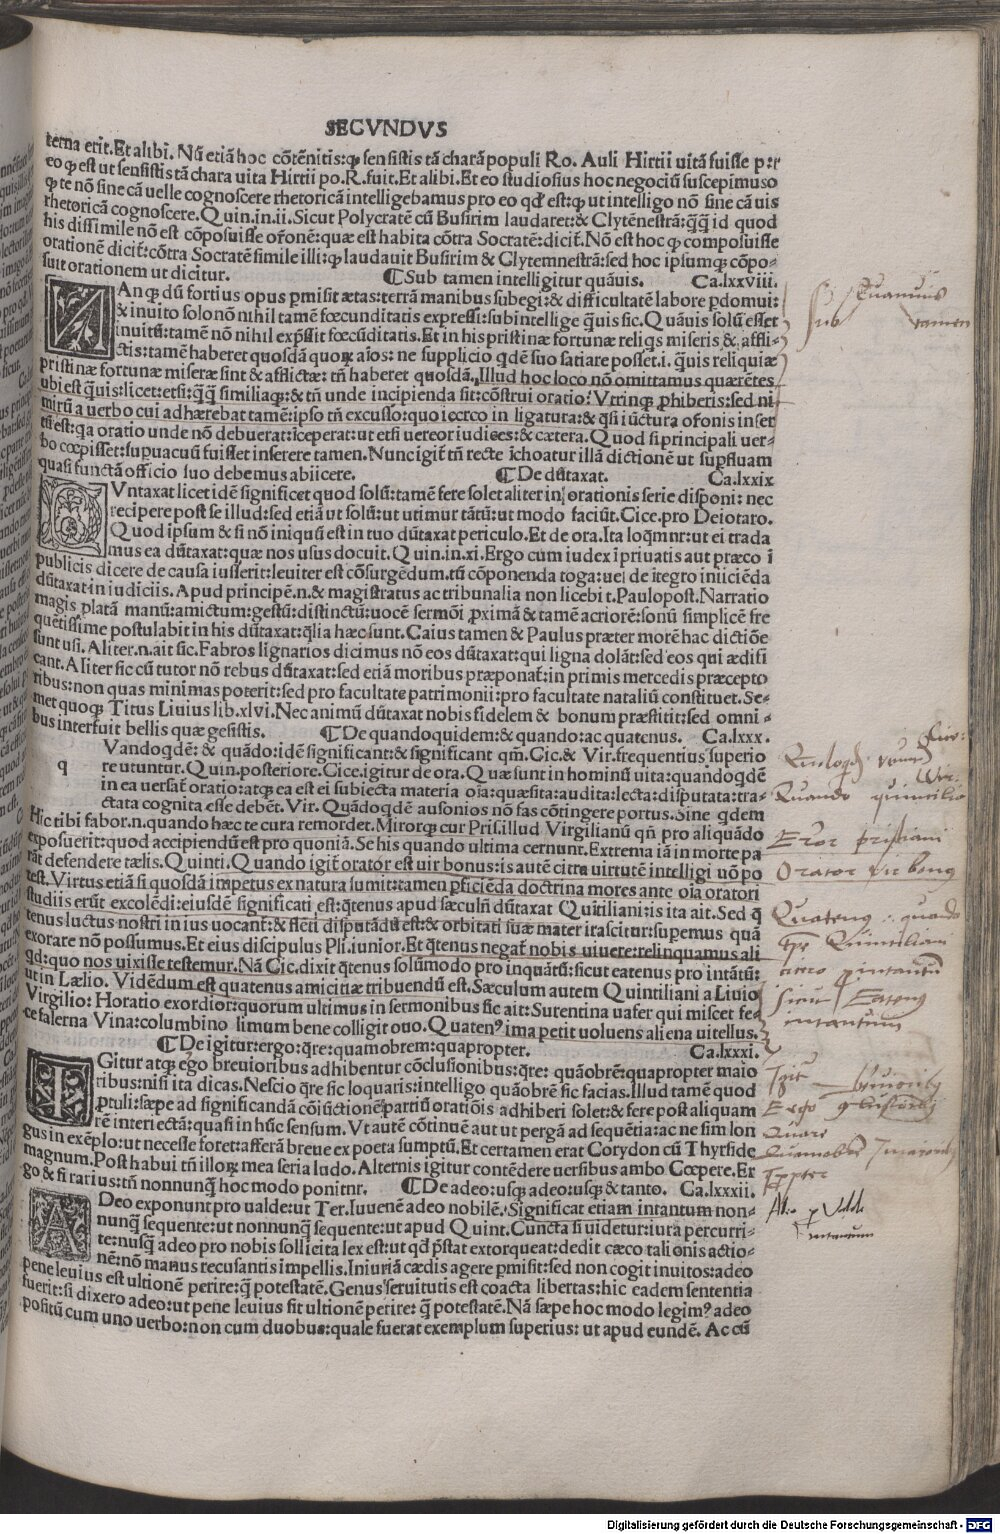 SECVNDVS
terna erit. Et alibi. Nã etiã hoc cõtẽnitis: ꝙ sensistis tã charã populi Ro. Auli Hirtii uitã fuisse p:r
eo ꝙ est ut sensistis tã chara uita Hirtii po. R. fuit. Et alibi. Et eo studiosius hoc negociũ suscepimus o
ꝙ te nõ sine cã uelle cognoscere rhetoricã intelligebamus pro eo qd̃ est: ꝙ ut intelligo nõ sine cã uis
rhetoricã cognoscere. Quin. in. ii. Sicut Polycratẽ cũ Busirim laudaret: & Clytẽnestrã: q̃q̃ id quod
his dissimile nõ est cõposuisse or̃onẽ: quæ est habita cõtra Socratẽ: dicit̃. Nõ est hoc ꝙ composuisse
orationẽ dicit̃: cõtra Socratẽ simile illi: ꝙ laudauit Busirim & Clytemnestrã: sed hoc ipsumq; cõpo-
suit orationem ut dicitur. ¶ Sub tamen intelligitur quãuis. Ca. lxxviii.
Anq; dũ fortius opus p̃misit ætas: terrã manibus subegi: & difficultatẽ labore p̃domui:
& inuito solo nõ nihil tamẽ fœcunditatis expressi: subintellige q̃uis sic. Quãuis solũ esset
inuitũ: tamẽ nõ nihil exp̃ssit fœcũditatis. Et in his pristinæ fortunæ reliq̃s miseris & affli-
ctis: tamẽ haberet quosdã quoꝝ aĩos: ne supplicio q̃dẽ suo satiare posset. i. q̃uis reliquiæ
pristinæ fortunæ miseræ sint & afflictæ: tñ haberet quosdã. Illud hoc loco nõ omittamus quærẽtes
ubi est q̃uis: licet: etsi: q̃q̃ similiaq;: & tñ unde incipienda sit: cõstrui oratio? Vtrinq; p̱hiberis: sed ni-
mirũ a uerbo cui adhærebat tamẽ: ipso tñ excusso: quo iecrco in ligatura: & q̃si iũctura or̃onis inser
tũ est: q̃a oratio unde nõ debuerat: ĩceperat: ut etsi uereor iudices: & cætera. Quod si principali uer-
bo cœpisset: supuacuũ fuisset inserere tamen. Nunc igit̃ tñ recte ĩchoatur illã dictionẽ ut sup̱fluam
quasi functã officio suo debemus abiicere. ¶ De dũtaxat. Ca. lxxix
Vntaxat licet idẽ significet quod solũ: tamẽ fere solet aliter in orationis serie disponi: nec
recipere post se illud: sed etiã ut solũ: ut utimur tãtũ: ut modo faciũt. Cice. pro Deiotaro.
Quod ipsum & si nõ iniquũ est in tuo dũtaxat periculo. Et de ora. Ita loq̃mur: ut ei trada
mus ea dũtaxat: quæ nos usus docuit. Quin. in. xi. Ergo cum iudex ĩ priuatis aut præco ĩ
publicis dicere de causa iusserit: leuiter est cõsurgẽdum. tũ cõponenda toga: uel de ĩtegro iniiciẽda
dũtaxat in iudiciis. Apud principẽ. n. & magistratus ac tribunalia non licebit. Paulo post. Narratio
magis platã manũ: amictum: gestũ: distinctũ: uocẽ sermõi p̱ximã & tamẽ acriorẽ: sonũ simplicẽ fre
quẽtissime postulabit in his dũtaxat: q̃lia hæc sunt. Caius tamen & Paulus præter morẽ hac dictiõe
sunt usi. Aliter. n. ait sic. Fabros lignarios dicimus nõ eos dũtaxat: qui ligna dolãt: sed eos qui ædifi
cant. Aliter sic cũ tutor nõ rebus dũtaxat: sed etiã moribus præponat̃: in primis mercedis præcepto
ribus: non quas minimas poterit: sed pro facultate patrimonii: pro facultate nataliũ constituet. Se-
met quoq; Titus Liuius lib. xlvi. Nec animũ dũtaxat nobis fidelem & bonum præstitit: sed omni-
bus interfuit bellis quæ gessistis. ¶ De quandoquidem: & quando: ac quatenus. Ca. lxxx.
q Vandoqdẽ: & quãdo: idẽ significant: & significant qm̃. Cic. & Vir. frequentius superio
re utuntur. Quin. posteriore. Cice. igitur de ora. Quæ sunt in hominũ uita: quandoqdẽ
in ea uersat̃ oratio: atq; ea est ei subiecta materia oĩa: quæsita: audita: lecta: disputata: tra-
ctata cognita esse debẽt. Vir. Quãdoqdẽ ausonios nõ fas cõtingere portus. Sine q̃dem
Hic tibi fabor. n. quando hæc te cura remordet. Mirorq; cur Pris. illud Virgilianũ qñ pro aliquãdo
exposuerit: quod accipiendũ est pro quoniã. Se his quando ultima cernunt. Extrema iã in morte pa
rãt defendere tælis. Quinti. Quando igit̃ oratór est uir bonus: is autẽ citra uirtutẽ intelligi uõ po
test. Virtus etiã si quosdã impetus ex natura sumit: tamen p̱ficiẽda doctrina mores ante oĩa oratori
studiis erũt excolẽdi: eiusdẽ significati est: q̃tenus apud sæculũ dũtaxat Quĩtiliani: is ita ait. Sed q̃
tenus luctus nostri in ius uocant̃: & flẽti disputãdũ est: & orbitati suæ mater irascitur: supemus quã
exorare nõ possumus. Et eius discipulus Pli. iunior. Et q̃tenus negat̃ nobis uiuere: relinquamus ali
qd: quo nos uixisse testemur. Nã Cic. dixit q̃tenus solũmodo pro inquãtũ: sicut eatenus pro intãtũ:
ut in Lælio. Vidẽdum est quatenus amicitiæ tribuendũ est. Sæculum autem Quintiliani a Liuio
Virgilio: Horatio exordior: quorum ultimus in sermonibus sic ait: Surentina uafer qui miscet fæ
ce falerna Vina: columbino limum bene colligit ouo. Quatenꝰ ima petit uoluens aliena uitellus.
¶ De igitur: ergo: q̃re: quamobrem: quapropter. Ca. lxxxi.
Gitur atq; ego breuioribus adhibentur cõclusionibus: q̃re: quãobrẽ: quapropter maio
ribus: nisi ita dicas. Nescio q̃re sic loquaris: intelligo quãobrẽ sic facias. Illud tamẽ quod
ptuli: sæpe ad significandã cõiũctionẽ partiũ oratiõis adhiberi solet: & fere post aliquam
rẽ interiectã: quasi in hũc sensum. Vt autẽ cõtinuẽ aut ut pergã ad sequẽtia: ac ne sim lon
gus in exẽplo: ut necesse foret: afferã breue ex poeta sumptũ. Et certamen erat Corydon cũ Thyrside
magnum. Post habui tñ illoꝝ mea seria ludo. Alternis igitur contẽdere uersibus ambo Cœpere. Er
go & si rarius: tñ nonnunq̃ hoc modo ponitnr. ¶ De adeo: usq; adeo: usq; & tanto. Ca. lxxxii.
Deo exponunt pro ualde: ut Ter. Iuuenẽ adeo nobilẽ. Significat etiam intantum non-
nunq̃ sequente: ut nonnunq̃ sequente: ut apud Quint. Cuncta si uidetur: iura percurri-
te: nusq̃ adeo pro nobis sollicita lex est: ut qd p̃stat extorqueat: dedit cæco talionis actio-
nẽ: nõ manus recusantis impellis. Iniuriã cædis agere p̱misit: sed non cogit inuitos: adeo
pene leuius est ultionẽ perire: q̃ potestatẽ. Genus seruitutis est coacta libertas: hic eadem sententia
fuerit: si dixero adeo: ut pene leuius sit ultionẽ perire: q̃ potestatẽ. Nã sæpe hoc modo legimꝰ adeo
positũ cum uno uerbo: non cum duobus: quale fuerat exemplum superius: ut apud eundẽ. Ac cũ
Quamuis
sub tamen
Quando quintilio
Error prisciani
Orator vir bonus
Quatenus quando
Ergo
Quare
Digitalisierung gefördert durch die Deutsche Forschungsgemeinschaft - DFG